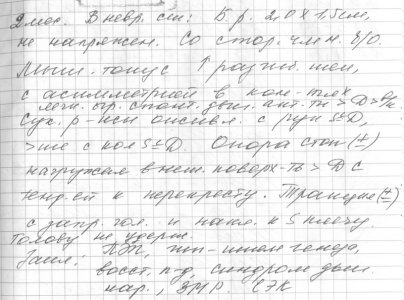 2 мес. В невр. ст: Б. р. 2,0 х 1,5 см,
не напряжен. Со стор. ч.м.н. б/о.
Мыш. тонус ↑ разгиб. шеи,
с асимметрией в кон-тях
огр. спонт. дви. акт. ти > D > в/к
Сух. р-ксы оживл. с рук S=D,
>ше с кол S=D. Опора стоп (±)
нагружает внеш. поверх-ть > D с
тенд-ей к перекресту. Тракция (±)
с запр. гол. и накл. к S плечу.
Голову не удерж.
Закл: ПЭП, гип-ишем генеза,
восст. п-д, синдром двиг.
нар., ЗМР.